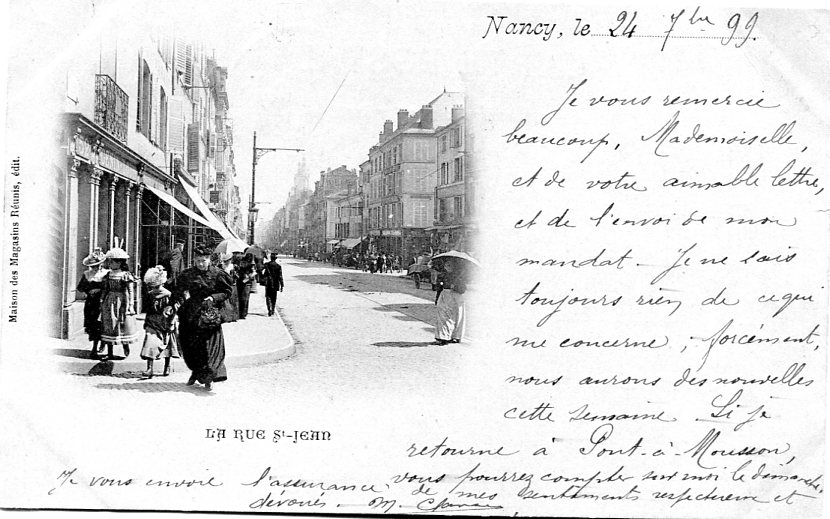 Nancy, le 24 7bre 99.
Je vous remercie
beaucoup, Mademoiselle,
et de votre aimable lettre,
et de l'envoi de mon
mandat. Je ne sais
toujours rien de ce qui
me concerne ; forcément,
nous aurons des nouvelles
cette semaine. Si je
retourne à Pont-à-Mousson,
vous pourrez compter sur moi le dimanche.
Je vous envoie l'assurance de mes sentiments respectueux et
dévoués. M.
LA RUE St-JEAN
Maison des Magasins Réunis, édit.